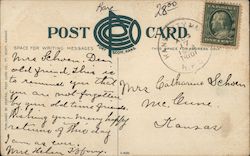 Rare
28.00
POST CARD
SPACE FOR WRITING MESSAGES
Mrs Schoen. Dear
old friend. This is
to remind you that
you are not forgotten
by your old time friends.
Wishing you many happy
returns of this day
I am as ever.
Mrs Helen
Mrs Catharine Schoen
Mc Cune
Kansas